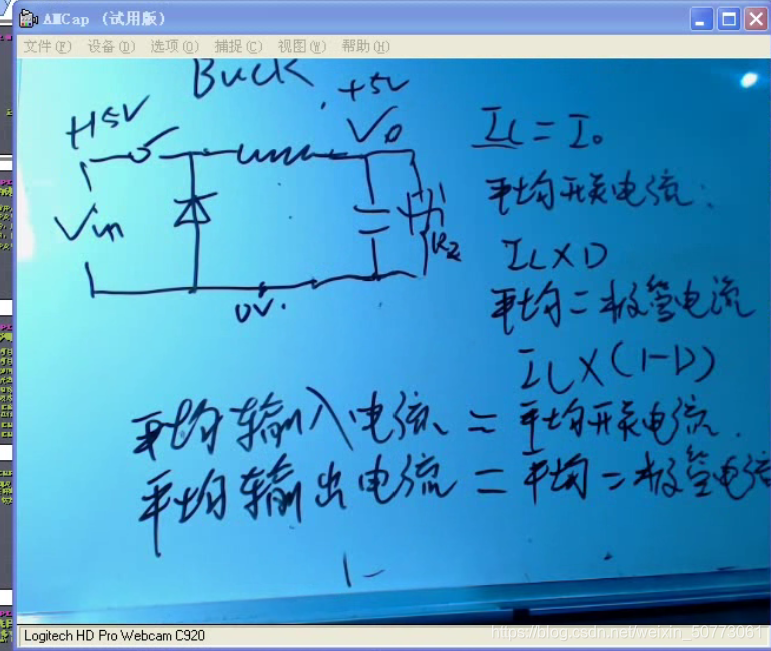 AMCap (试用版)
文件(F) 设备(D) 选项(O) 捕捉(C) 视图(W) 帮助(H)
Buck
+5V
+15V
Vo
Vin
RL
0V.
IL = Io
平均开关电流:
IL×D
平均二极管电流
IL×(1-D)
平均输入电流 = 平均开关电流.
平均输出电流 = 平均二极管电流
1-
Logitech HD Pro Webcam C920
https://blog.csdn.net/weixin_50773061